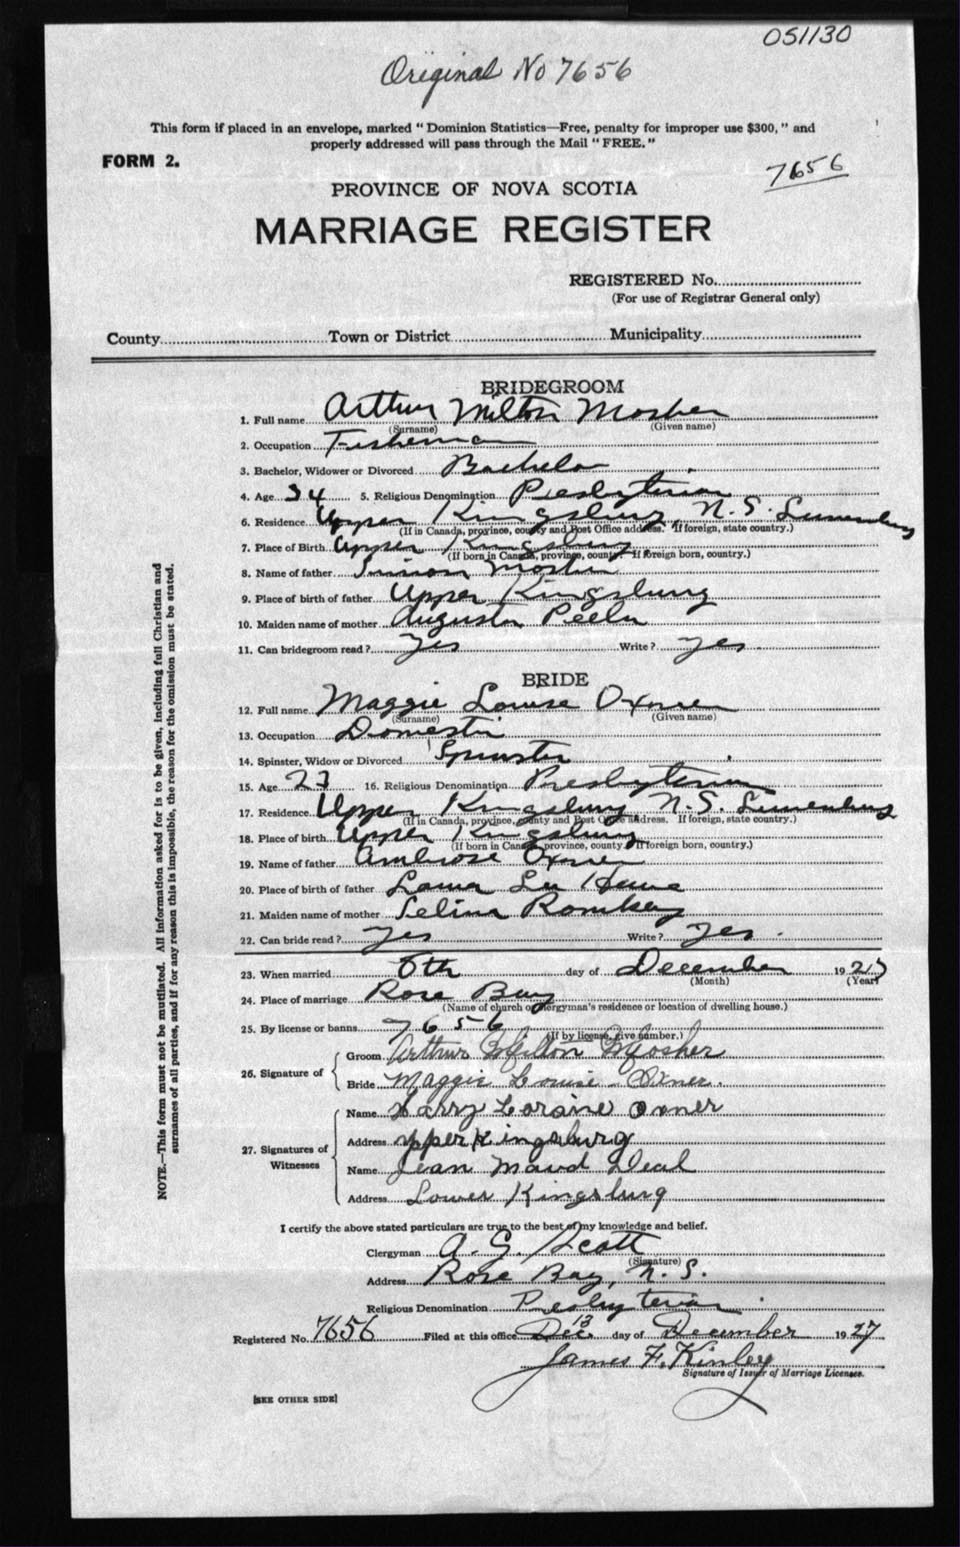 051130
Original No 7656
This form if placed in an envelope, marked "Dominion Statistics—Free, penalty for improper use $300," and
properly addressed will pass through the Mail "FREE."
FORM 2.
7656
PROVINCE OF NOVA SCOTIA
MARRIAGE REGISTER
REGISTERED No.
(For use of Registrar General only)
County Town or District Municipality
BRIDEGROOM
1. Full name Arthur Milton Mosher
(Surname) (Given name)
2. Occupation Fisherman
3. Bachelor, Widower or Divorced Bachelor
4. Age 24 5. Religious Denomination Presbyterian
6. Residence Upper Kingsburg, N.S. Lunenburg
(If in Canada, province, county and Post Office address. If foreign, state country.)
7. Place of Birth Upper Kingsburg
(If born in Canada, province, county If foreign born, country.)
8. Name of father Mosher
9. Place of birth of father Upper Kingsburg
10. Maiden name of mother Augusta
11. Can bridegroom read? Yes Write? Yes
BRIDE
12. Full name Maggie Louise Oxner
(Surname) (Given name)
13. Occupation Domestic
14. Spinster, Widow or Divorced Spinster
15. Age 23 16. Religious Denomination Presbyterian
17. Residence Upper Kingsburg N.S. Lunenburg
(If in Canada, province, county and Post Office address. If foreign, state country.)
18. Place of birth Upper Kingsburg
(If born in Canada, province, county If foreign born, country.)
19. Name of father Ambrose Oxner
20. Place of birth of father La Have
21. Maiden name of mother Selina Romkey
22. Can bride read? Yes Write? Yes.
23. When married 6th day of December 1927
(Month) (Year)
24. Place of marriage Rose Bay
(Name of church or clergyman's residence or location of dwelling house.)
25. By license or banns 7656
(If by license, give number.)
26. Signature of
Groom Arthur Milton Mosher
Bride Maggie Louise Oxner.
27. Signatures of Witnesses
Name Harry Loraine Oxner
Address upper Kingsburg
Name Jean Maud Deal
Address Lower Kingsburg
I certify the above stated particulars are true to the best of my knowledge and belief.
Clergyman A. G. Scott
(Signature)
Address Rose Bay, N.S.
Religious Denomination Presbyterian
Registered No. 7656 Filed at this office Dec. 13 day of December 1927
James F. Kinley
Signature of Issuer of Marriage Licenses.
[SEE OTHER SIDE]
NOTE.—This form must not be mutilated. All information asked for is to be given, including full Christian and
surnames of all parties, and if for any reason this is impossible, the reason for the omission must be stated.